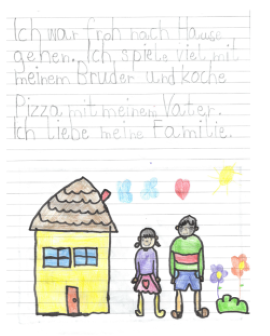 Ich war froh nach Hause
gehen. Ich spiele viel mit
meinem Bruder und koche
Pizza mit meinem Vater.
Ich liebe meine Familie.